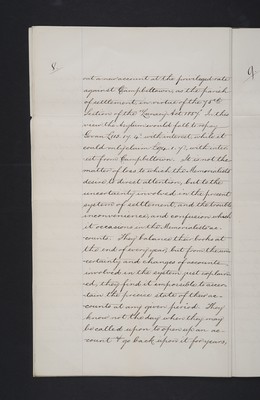 8
9
out a new account at the privileged rate
against Campbeltown, as the parish
of settlement, in virtue of the 75th
Section of the "Lunacy Act 1857." In this
view the Asylum would fall to repay
Govan with interest, while it
could only claim with inter-
est from Campbeltown. It is not the
matter of loss to which the Memorialists
desire to direct attention, but to the
uncertainty involved in the present
system of settlement, and the trouble
inconvenience and confusion which
it occasions in the Memorialists ac-
counts. They balance their books at
the end of every year, but from the un-
certainty and changes of accounts
involved in the system just explain-
ed, they find it impossible to ascer-
tain the precise state of their ac-
counts at any given period. They
know not the day when they may
be called upon to open up an ac-
count & go back upon it for years,